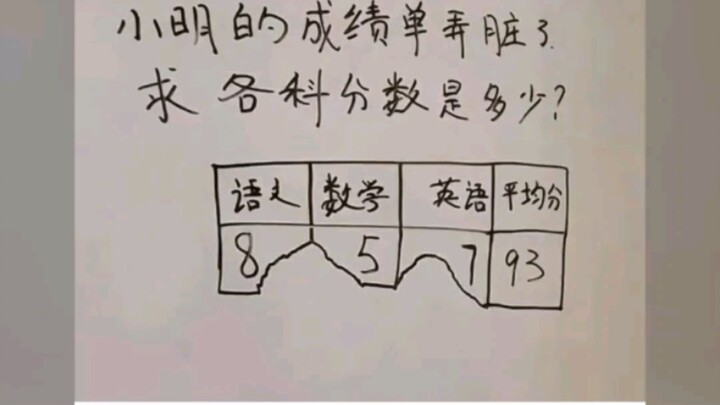 小明的成绩单弄脏了.
求各科分数是多少?
语文 数学 英语 平均分
8 5 7 93